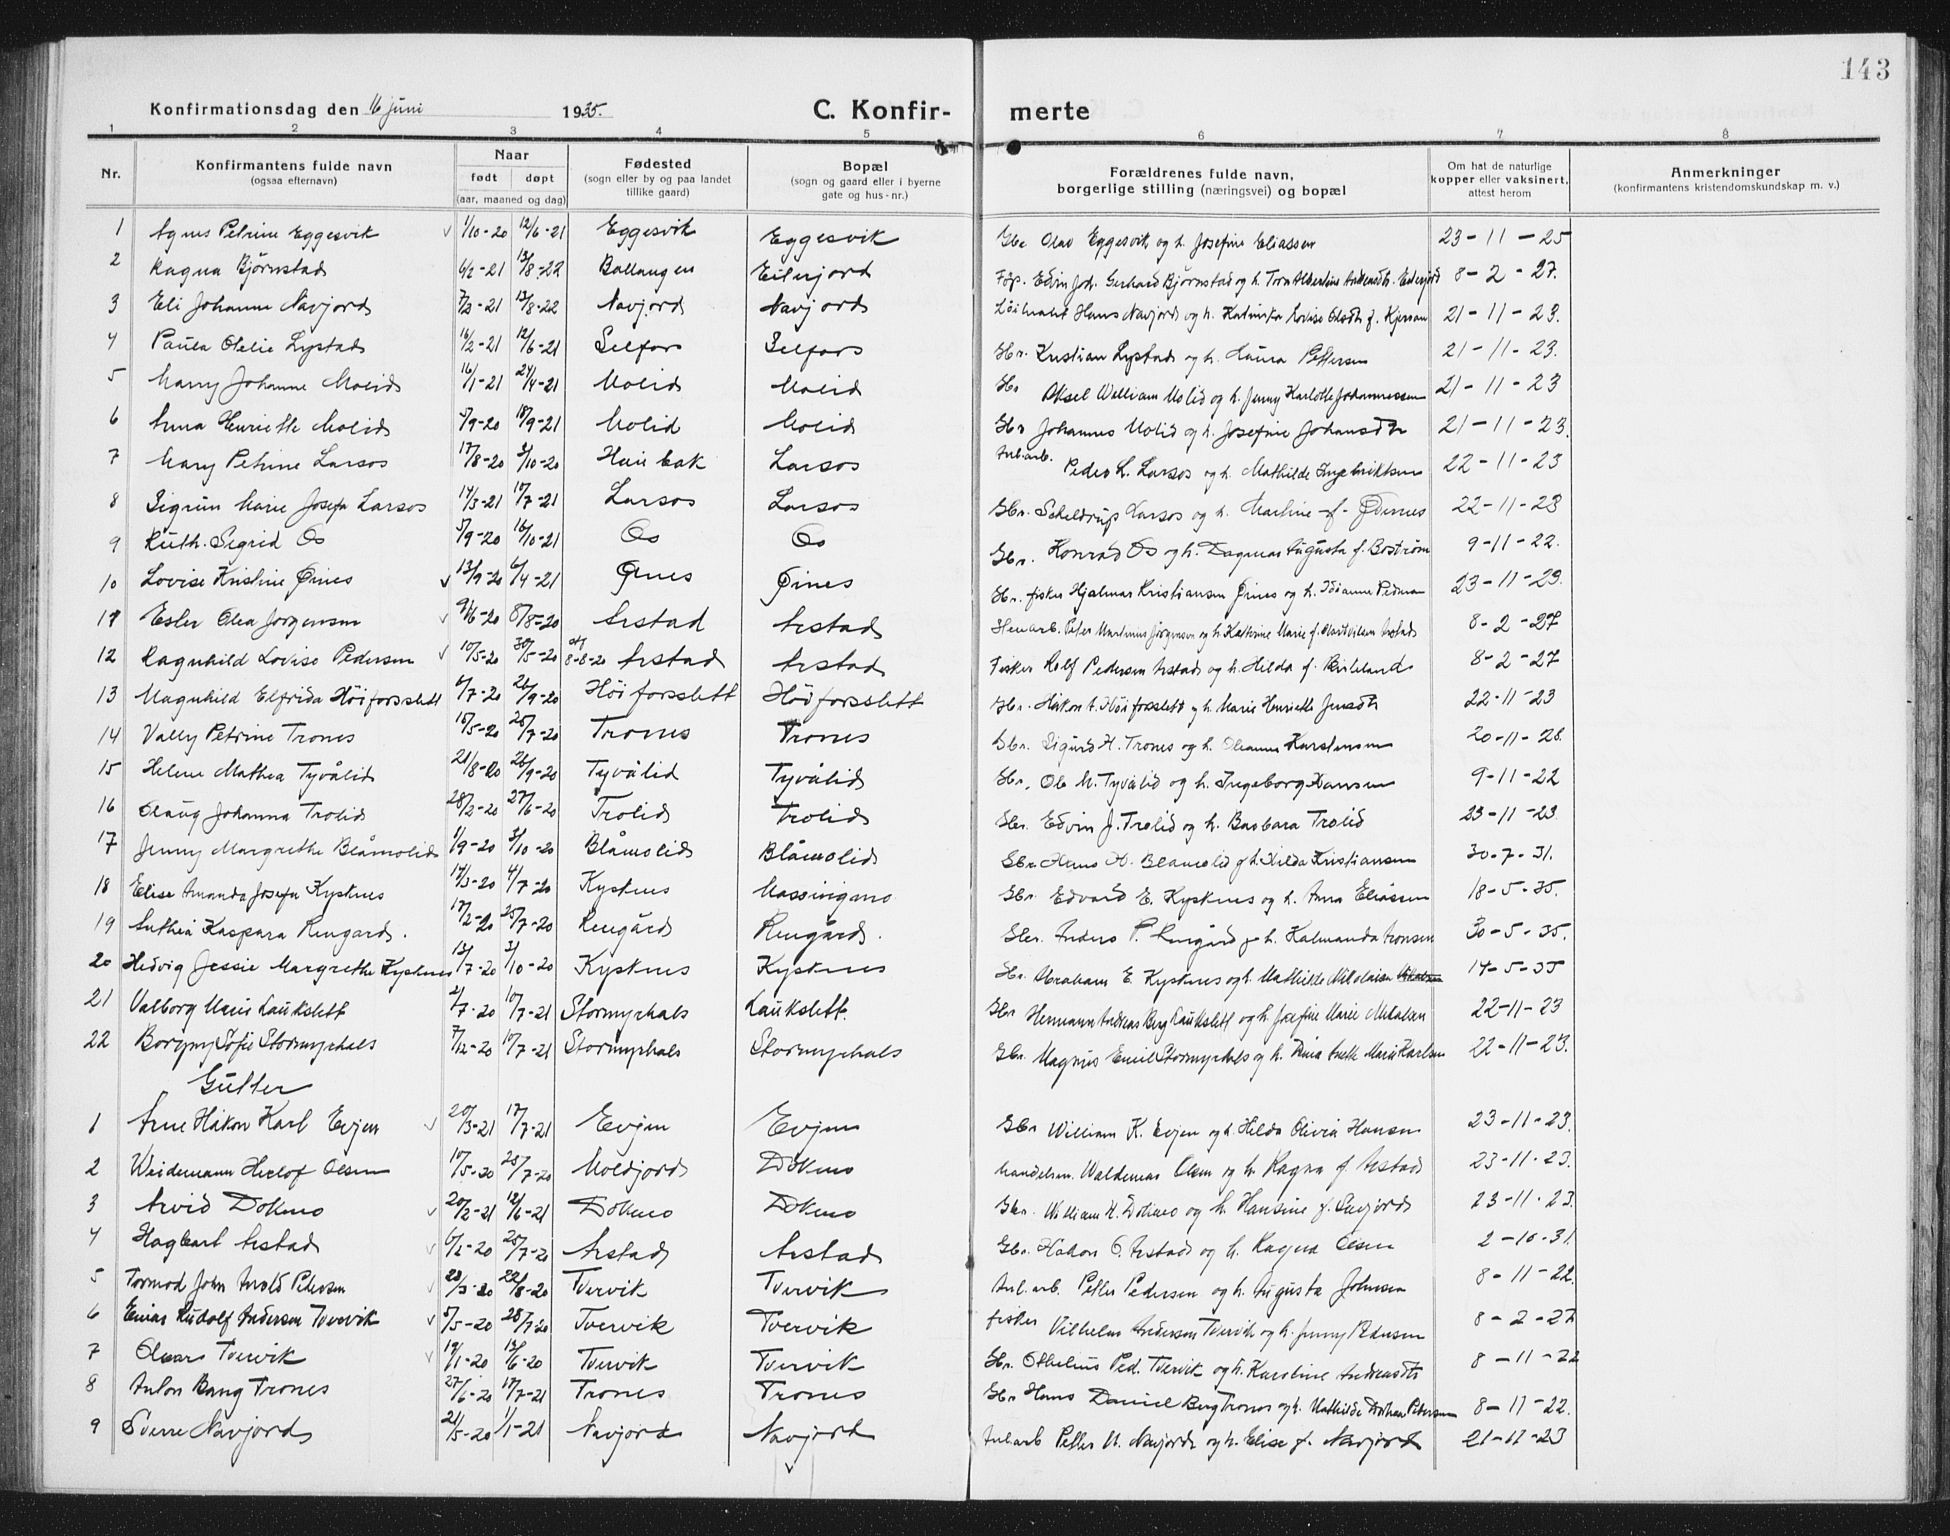 143
Konfirmationsdag den 16 juni 1935. C. Konfir- merte
1 2 3 4 5 6 7 8
Nr. Konfirmantens fulde navn (ogsaa efternavn) Naar født døpt (aar, maaned og dag) Fødested (sogn eller by og paa landet tillike gaard) Bopæl (sogn og gaard eller i byerne gate og hus-nr.) Forældrenes fulde navn, borgerlige stilling (næringsvei) og bopæl Om hat de naturlige kopper eller vaksinert, attest herom Anmerkninger (konfirmantens kristendomskundskap m. v.)
1 Agnes Petrine Eggesvik 1/10-20 12/6-21 Eggesvik Eggesvik Gbr Olav Eggesvik og h. Josefine Eliassen 23-11-25
2 Ragna Bjørnstad 6/2-21 13/8-22 Ballangen Eiterjord Edvin Joh. Gerhard Bjørnstad og h. 8-2-27.
3 Eli Johanne Navjord 7/3-21 13/8-22 Navjord Navjord Hans Navjord og h. Katinka Lovise Olsdt f. 21-11-23.
4 Paula Otelie Lystad 16/2-21 12/6-21 Selfors Selfors Gbr. Kristian Lystad og h. Laura Pettersen 21-11-23.
5 Marry Johanne Molid 16/1-21 24/4-21 Molid Molid Gbr Aksel William Molid og h. Jenny Karlotte Johannessen 21-11-23
6 Anna Henriette Molid 5/9-20 18/9-21 Molid Molid Gbr Johannes Molid og h. Josefine Johansdtr 21-11-23.
7 Mary Petrine Larsos 17/8-20 3/10-20 Larsos Anl.arb. Peder L. Larsos og h. Mathilde Ingebriktsen 22-11-23
8 Sigrun Marie Josefa Larsos 14/3-21 10/7-21 Larsos Larsos Gbr. Scheldrup Larsos og h. Martine f. Øines 22-11-23
9 Ruth Sigrid Os 5/9-20 16/10-21 Os Os Gbr. Konrad Os og h. Dagmar Augusta f. Bostrøm 9-11-22.
10 Lovise Kristine Øines 13/9-20 6/4-21 Øines Øines Gbr. fisker Hjalmar Kristiansen Øines og h. 23-11-23.
11 Ester Olea Jørgensen 9/6-20 8/8-20 Arstad Arstad Peter Martinus Jørgensen og h. Kathrine Marie f. 8-2-27
12 Ragnhild Lovise Pedersen 10/5-20 30/5-20 8-8-20 Arstad Arstad Fisker Rolf Pedersen Arstad og h. Hilda f. 8-2-27
13 Magnhild Elfrida Höiforsslett 6/7-20 26/9-20 Höiforsslett Höiforsslett Gbr. Håkon A. Höiforsslett og h. Marie Henriette Jensdtr 22-11-23
14 Vally Petrine Trones 15/5-20 25/7-20 Trones Trones Gbr. Sigurd H. Trones og h. Oleanna Karstensen 20-11-28.
15 Helene Mathea Tyvålid 21/8-20 26/9-20 Tyvålid Tyvålid Gbr. Ole M. Tyvålid og h. Ingeborg Hansen 9-11-22
16 Olaug Johanna Trolid 28/2-20 27/6-20 Trolid Trolid Gbr. Edvin J. Trolid og h. Barbara Trolid 23-11-23
17 Jenny Margrethe Blåmolid 1/9-20 3/10-20 Blåmolid Blåmolid Gbr Hans H. Blåmolid og h. Hilda Kristiansen 30-7-31.
18 Elise Amanda Josefa Kystnes 14/3-20 4/7-20 Kystnes Massivigmo Gbr. Edvard E. Kystnes og h. Anna Eliassen 18-5-35.
19 Anthea Kaspara Rengård. 17/2-20 25/7-20 Rengård Rengård. Gbr. Anders P. Rengård og h. Kalmanda Aronsen 30-5-35.
20 Hedvig Jessie Margrethe Kystnes 13/7-20 3/10-20 Kystnes Kystnes Gbr. Abraham E. Kystnes og h. Mathilde Nikolaisen 14-5-35
21 Valborg Marie Laukslett 2/7-20 10/7-21 Stormyrhals Laukslett. Gbr Hermann Andreas Berg Laukslett og h. Josefine Marie Mikalsen 22-11-23
22 Borgny Sofie Stormyrhals 7/12-20 17/7-21 Stormyrhals Stormyrhals Gbr. Magnus Emil Stormyrhals og h. Anette Marie Karlsen 22-11-23.
Gutter
1 Arne Håkon Karl Evjen 20/3-21 17/7-21 Evjen Evjen Gbr William K. Evjen og h. Hilda Olivia Hansen 23-11-23.
2 Weidemann Herlof Olsen 10/5-20 25/7-20 Moldjord Dokmo handelsm. Waldemar Olsen og h. Ragna f. Arstad 23-11-23.
3 Arvid Dokmo 20/2-21 12/6-21 Dokmo Dokmo Gbr. William H. Dokmo og h. Hansine f. 23-11-23.
4 Hagbart Arstad 6/2-20 25/7-20 Arstad Arstad Gbr. Håkon O. Arstad og h. Ragna Olsen 2-10-31.
5 Tormod John Arold Pedersen 28/3-20 22/8-20 Tvervik Tvervik Anl.arb. Petter Pedersen og h. Augusta Johnsen 8-11-22.
6 Einar Rudolf Andersen Tvervik 5/5-20 25/7-20 Tvervik Tvervik fisker Vilhelm Andersen Tvervik og h. Jenny Pedersen 8-2-27
7 Olvar Tvervik 19/1-20 13/6-20 Tvervik Tvervik Gbr. Othelius Ped. Tvervik og h. Karoline Andreasdtr 8-11-22
8 Anton Bang Trones 27/6-20 17/7-21 Trones Trones Gbr Hans Daniel Berg Trones og h. Mathilde Pedersen 8-11-22.
9 Sverre Navjord 21/5-20 1/1-21 Navjord Navjord Anl.arb Petter N. Navjord og h. Elise f. Navjord 21-11-23